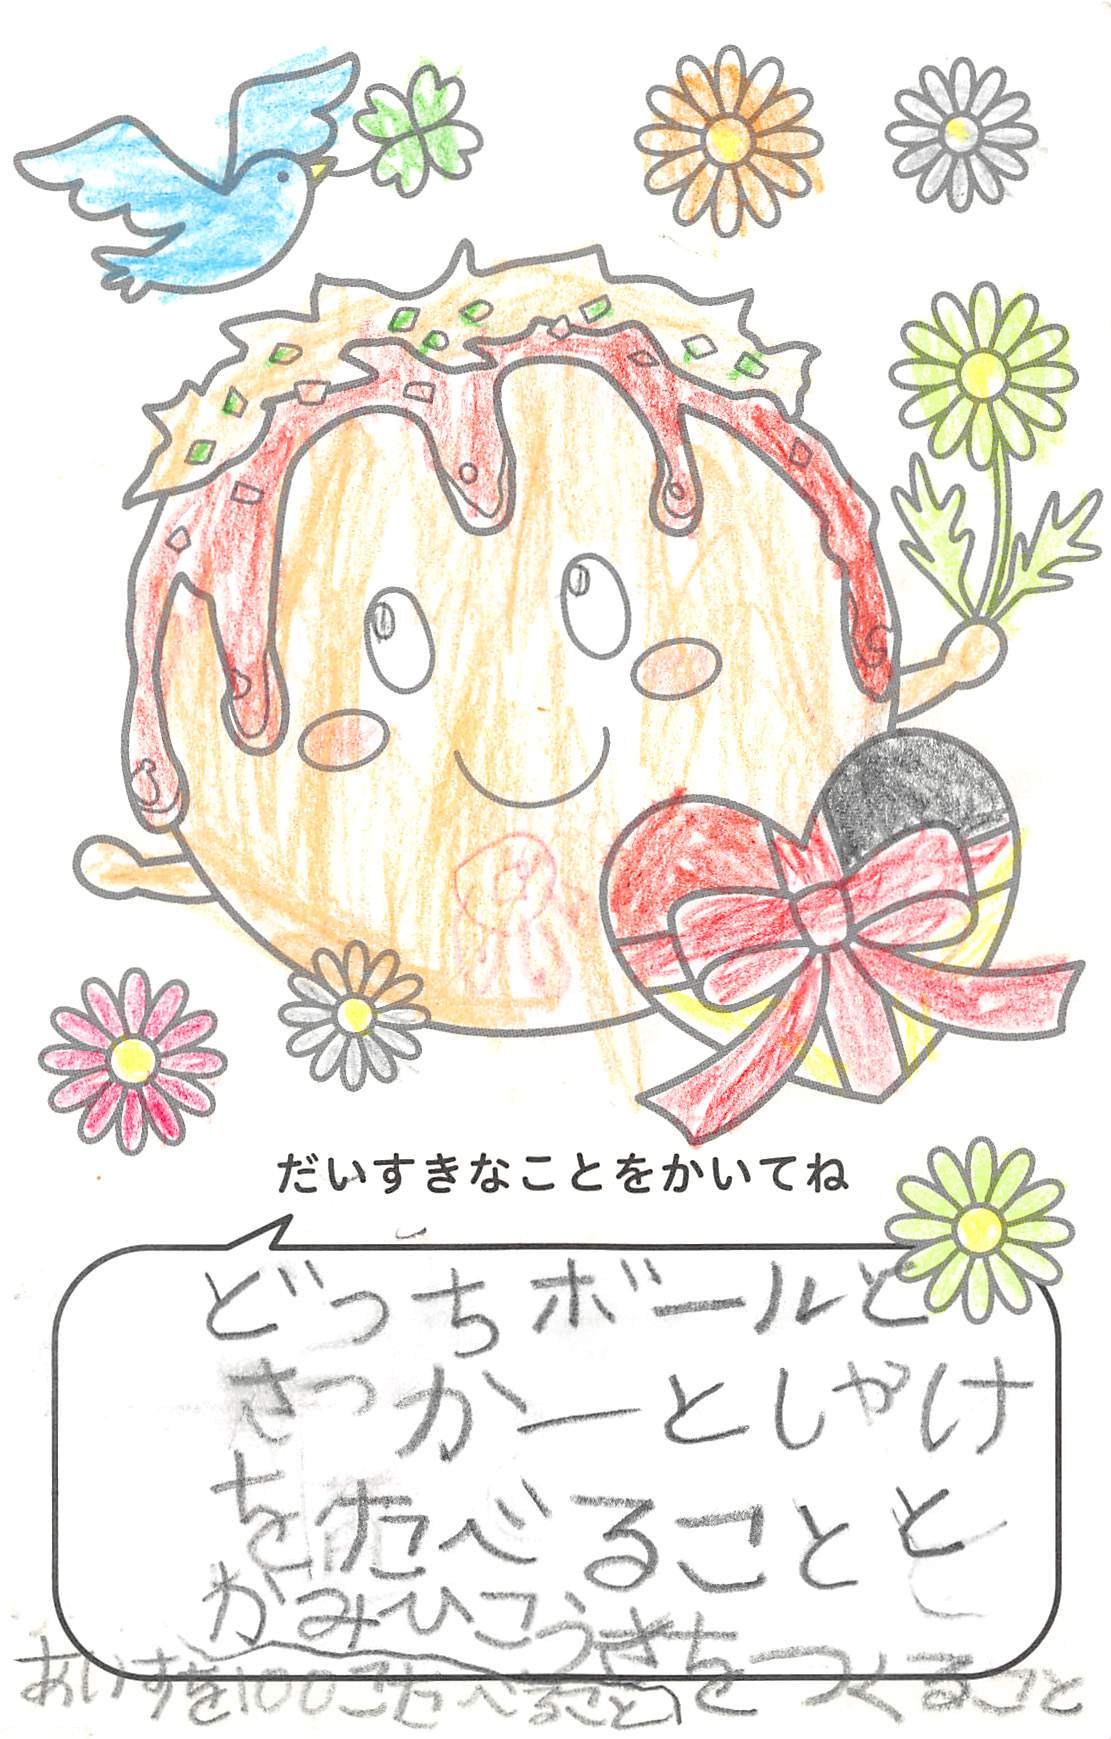 だいすきなことをかいてね
どっちボールと
さっかーとしゃけ
をたべることと
かみひこうきをつくること
あいすを100こたべること